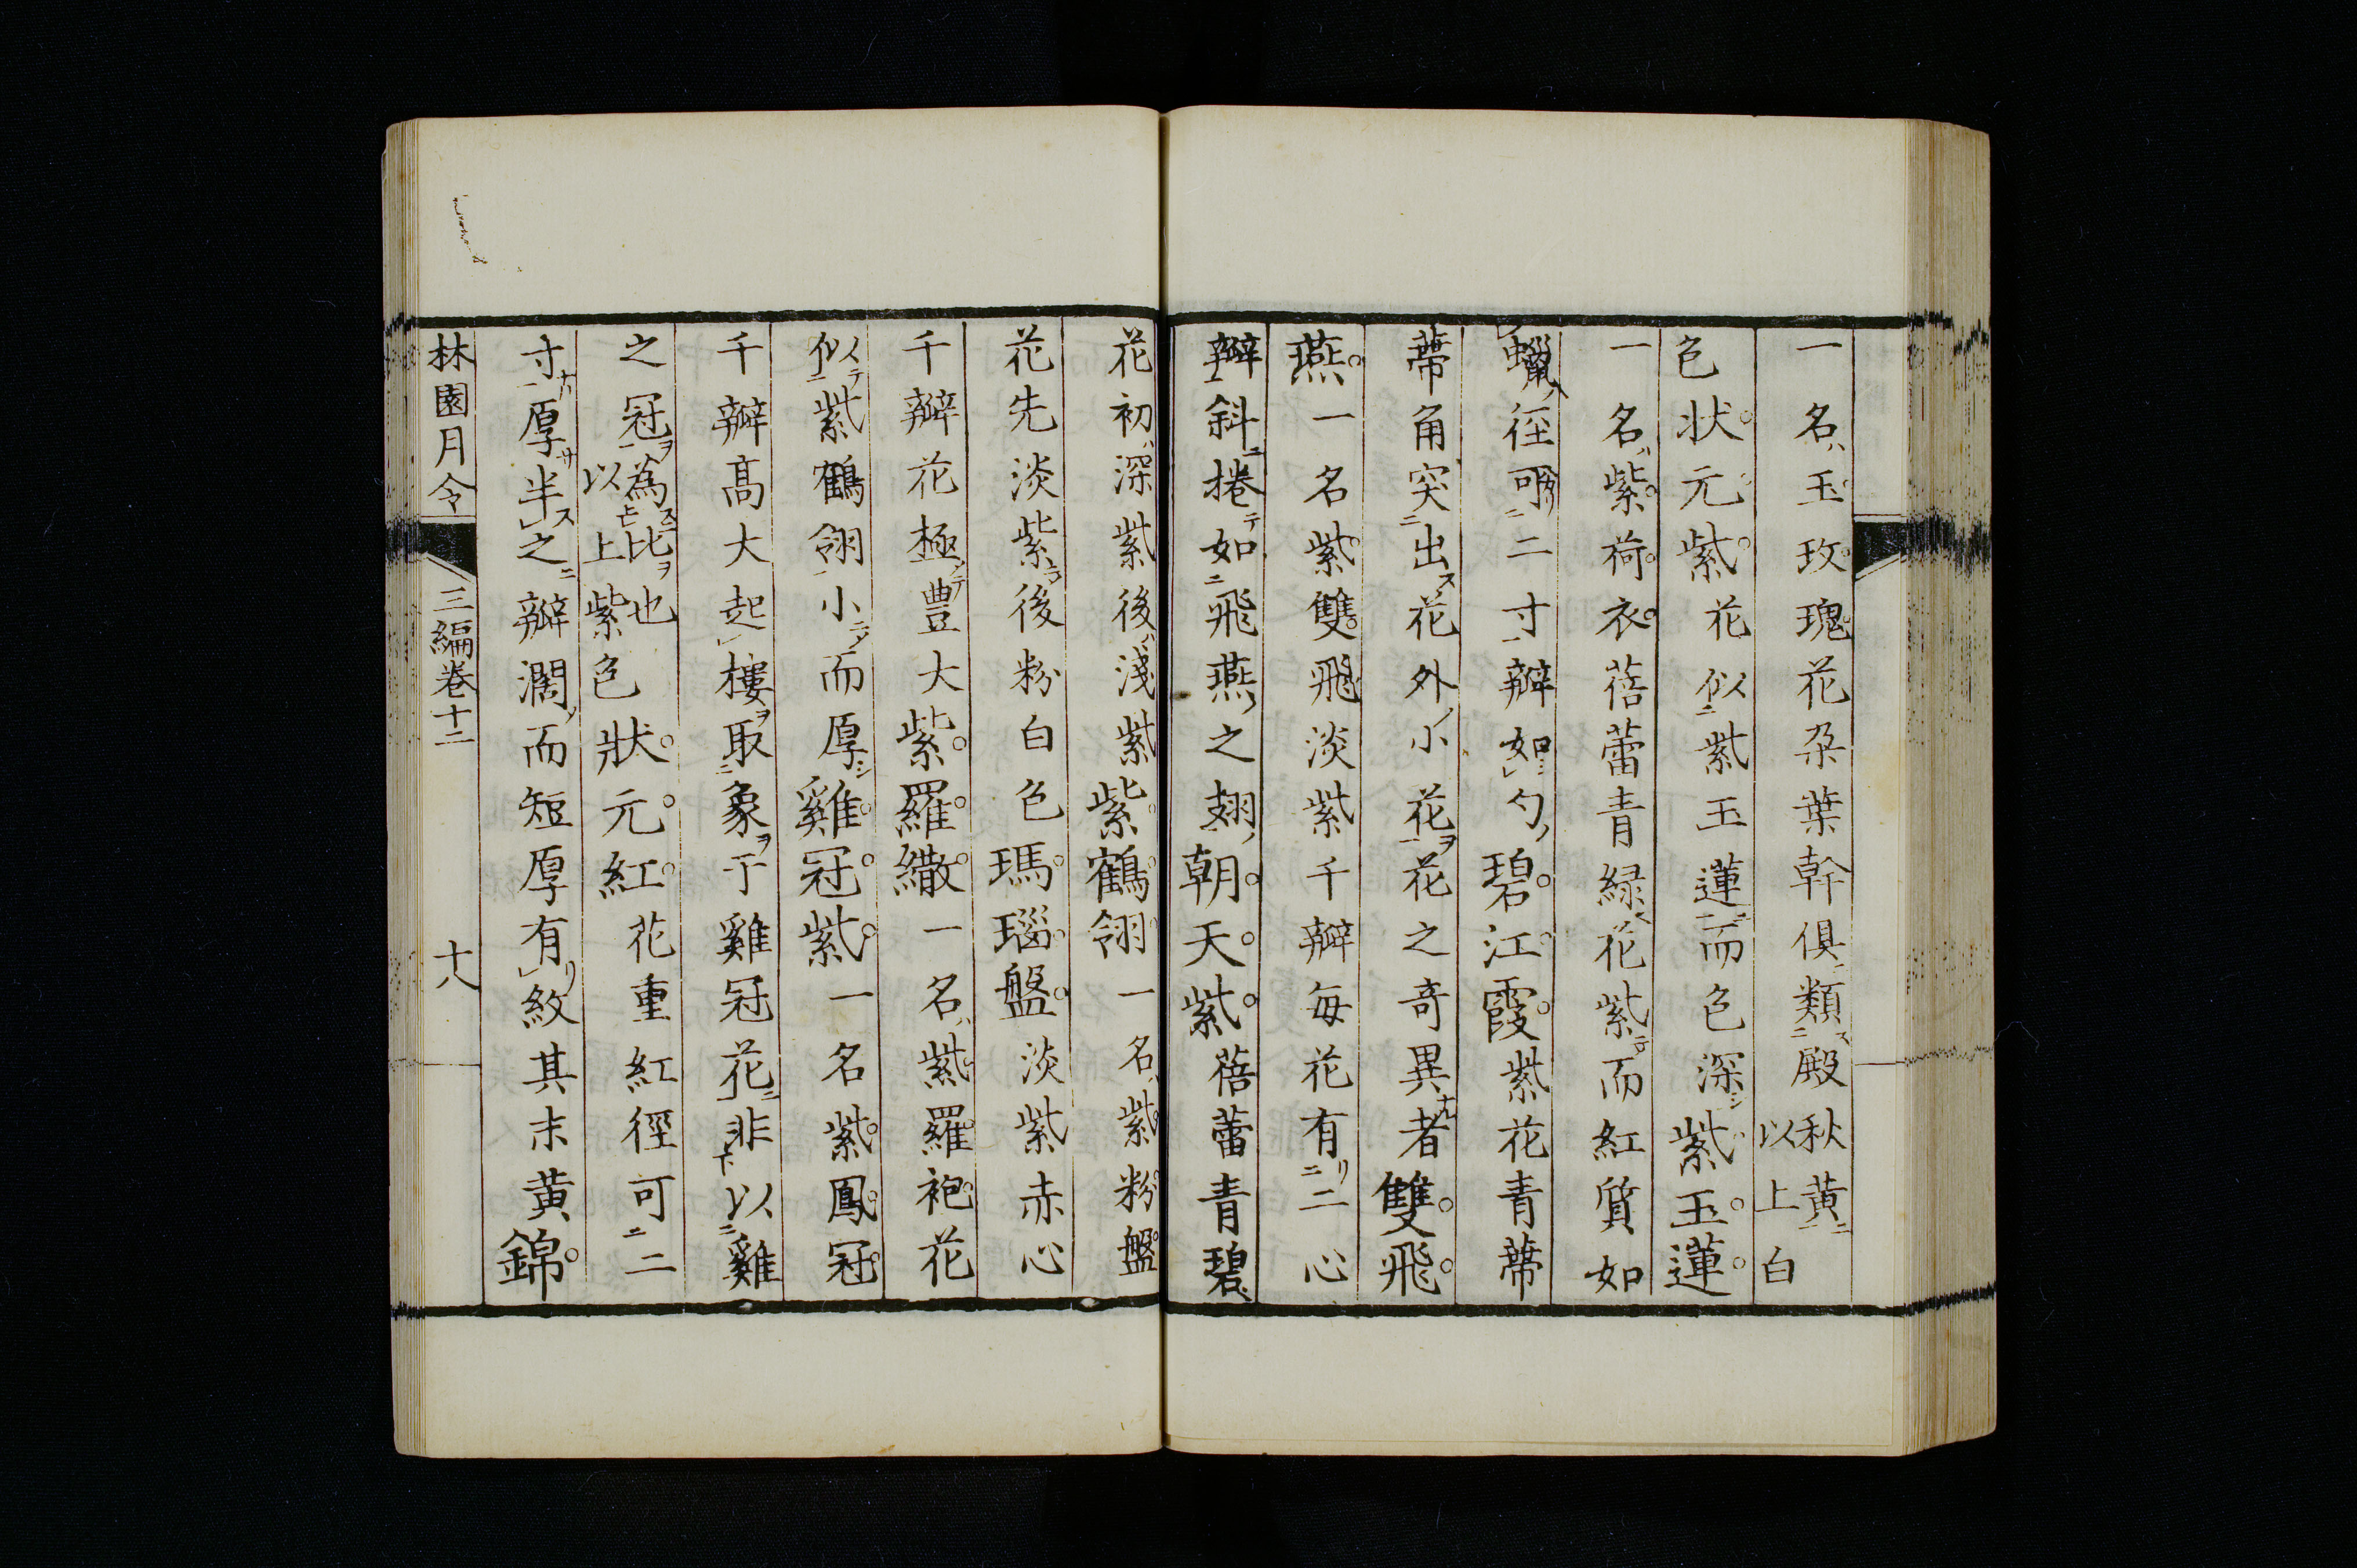 一名玉玫瑰花朶葉幹俱類殿秋黄以上白
色狀元紫花似紫玉蓮而色深紫玉蓮
一名紫荷衣蓓蕾青緑花紫而紅質如
蠟徑可二寸瓣如勺碧江霞紫花青蔕
蔕角突出花外小花花之奇異者雙飛
燕一名紫雙飛淡紫千瓣每花有二心
瓣斜捲如飛燕之翅朝天紫蓓蕾青碧
花初深紫後淺紫紫鶴翎一名紫粉盤
花先淡紫後粉白色瑪瑙盤淡紫赤心
千瓣花極豊大紫羅繖一名紫羅袍花
似紫鶴翎小而厚雞冠紫一名紫鳳冠
千瓣髙大起樓取象于雞冠花非以雞
之冠為比也以上紫色狀元紅花重紅徑可二
寸厚半之瓣濶而短厚有紋其末黄錦
林園月令 三編卷十二 十八